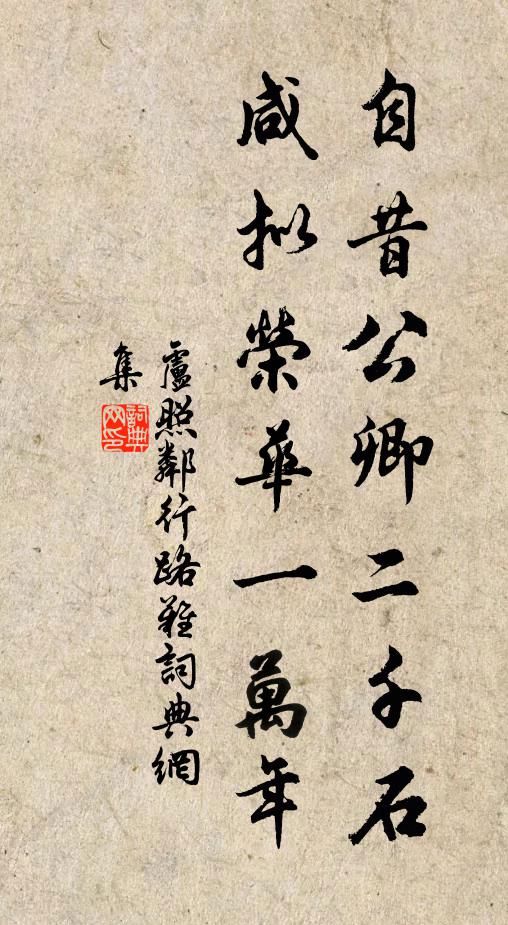 自昔公卿二千石
咸拟榮華一萬年
盧照鄰行路難詞典網
集
詞典
网印